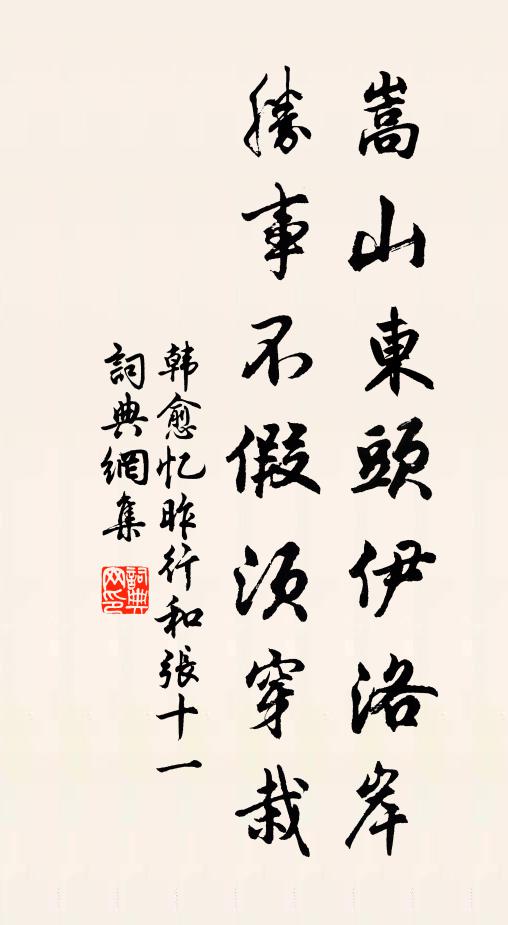 嵩山東頭伊洛岸
勝事不假須穿栽
韩愈忆昨行和張十一
詞典網集
詞典
网印